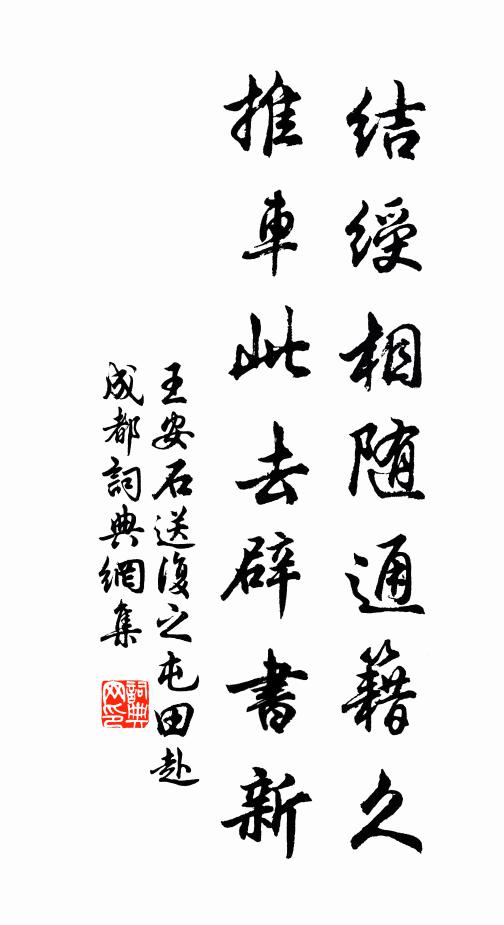 结綬相随通籍久
推車此去辟書新
王安石送復之屯田赴
成都詞典網集
詞典
网印